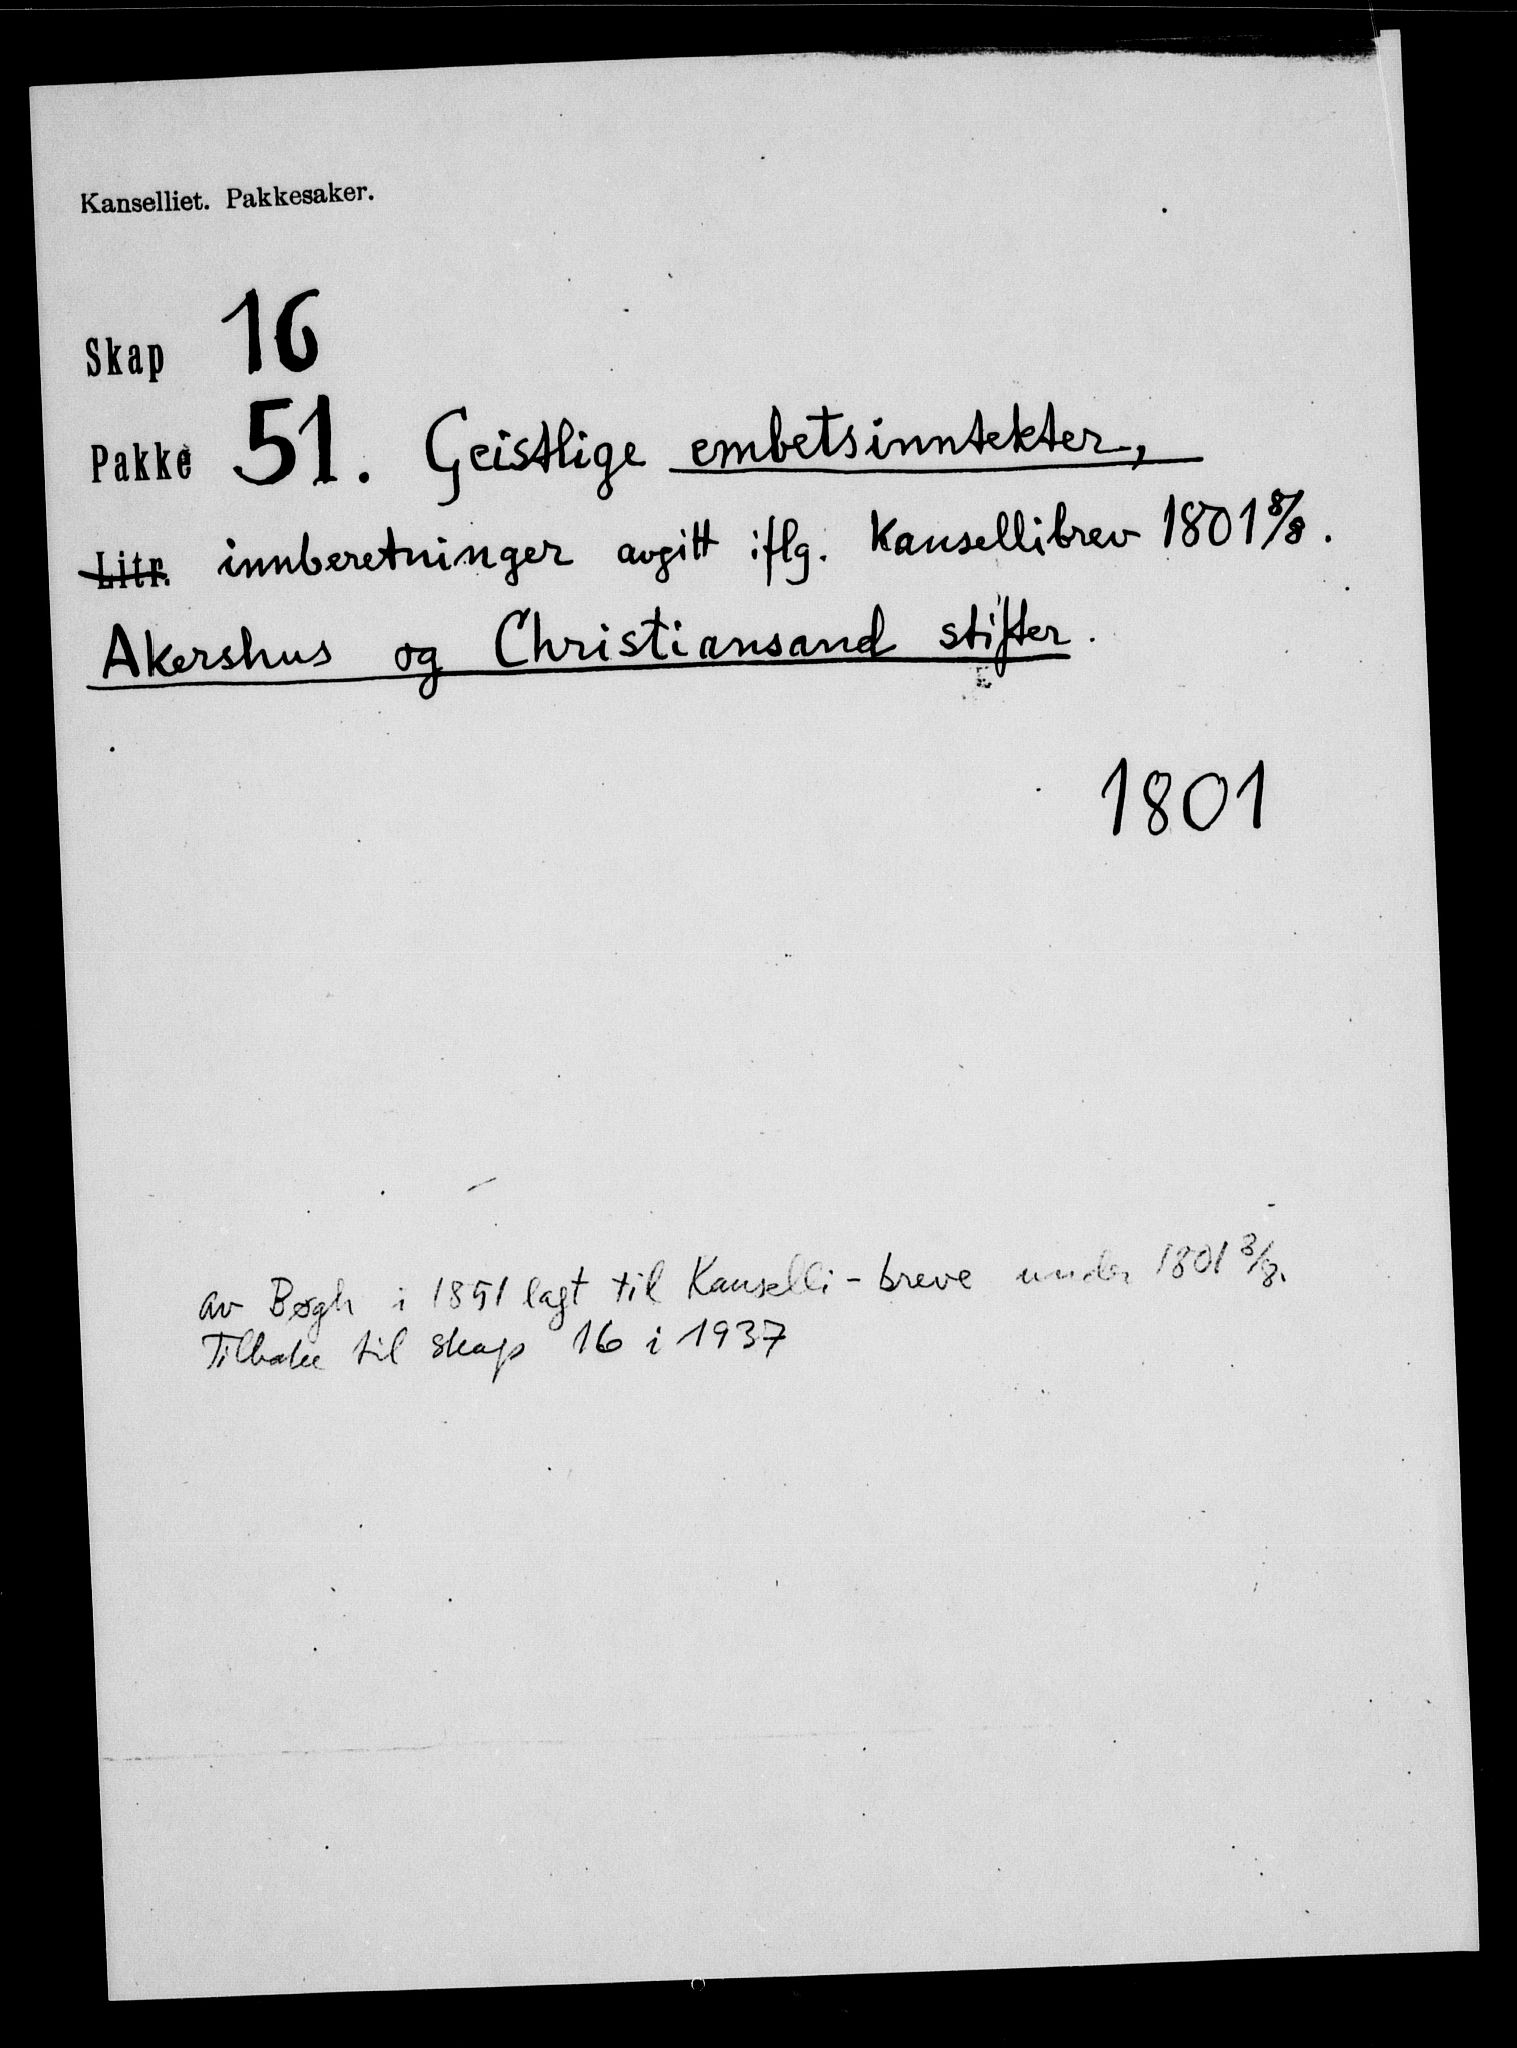 Kanselliet. Pakkesaker.
Skap 16
Pakke 51. Geistlige embetsinntekter,
Litr. innberetninger avgitt iflg. Kansellibrev 1801 8/8.
Akershus og Christiansand stifter.
1801
av Bøgh i 1851 lagt til Kanselli-breve under 1801 8/8.
Tilbake til skap 16 i 1937